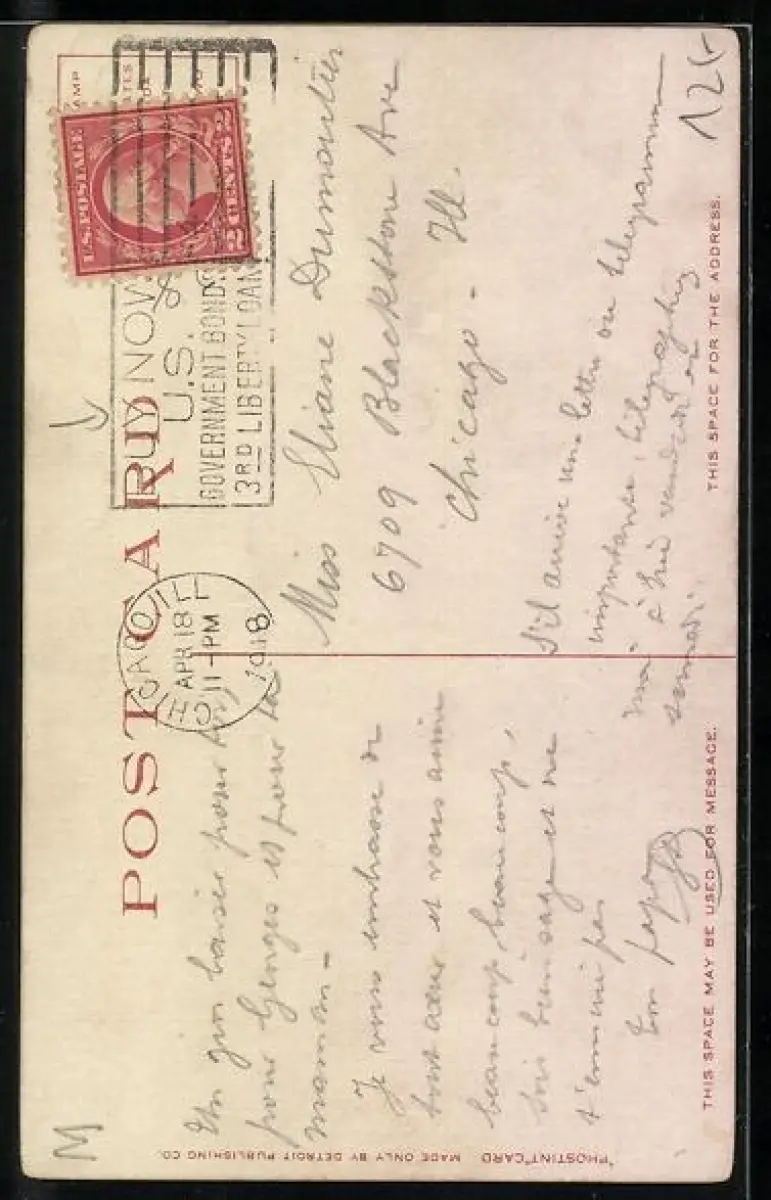 POST CARD
STAMP
U.S. POSTAGE
2 CENTS 2
BUY NOW
U.S.
GOVERNMENT BONDS
3RD LIBERTY LOAN
CHICAGO ILL
APR 18
11 - PM
1918
Un gros baiser pour toi,
pour Georges et pour ta
maman -
Je vous embrasse de
tout cœur et vous aime
beaucoup beaucoup,
Sois bien sage et ne
t'ennuie pas
ton papa
Miss Eliane Dumontier
6709 Blackstone Ave
Chicago - Ill.
S'il arrive une lettre ou telegramme
important, telegraphiez
moi à vendredi
samedi
125
M
THIS SPACE MAY BE USED FOR MESSAGE.
THIS SPACE FOR THE ADDRESS.
"PHOSTINT" CARD MADE ONLY BY DETROIT PUBLISHING CO.